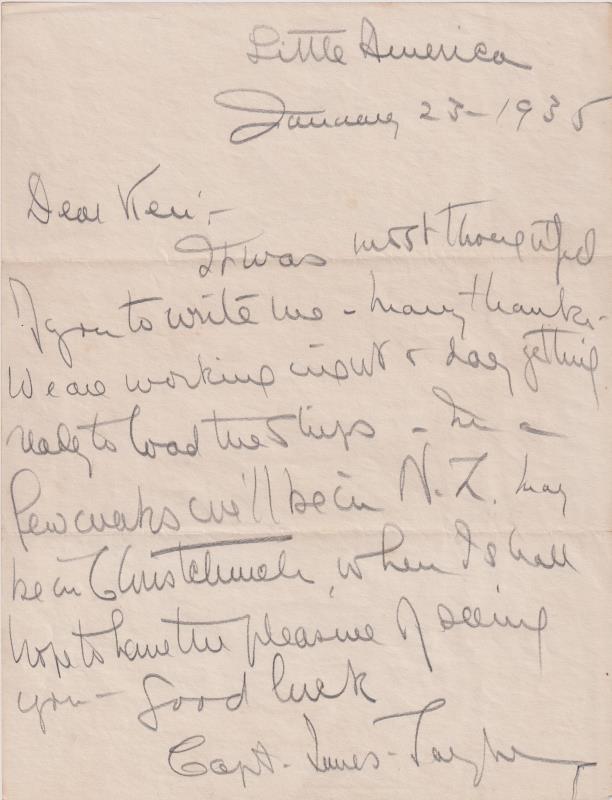 Little America
January 23 - 1935
Dear Ken -
It was most thoughtful
of you to write me - many thanks -
We are working night & day getting
ready to load the ships - In a
few weeks we'll be in N.Z. may
be in Christchurch, when I shall
hope to have the pleasure of seeing
you - Good luck
Capt - Innes - Taylor